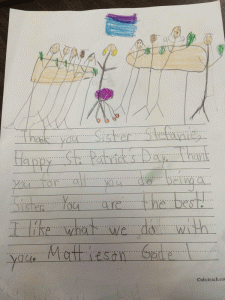 Thank you Sister Stefanie,
Happy St. Patrick's Day. Thank
you for all you do being a
Sister. You are the best.
I like what we do with
you. Mattieson